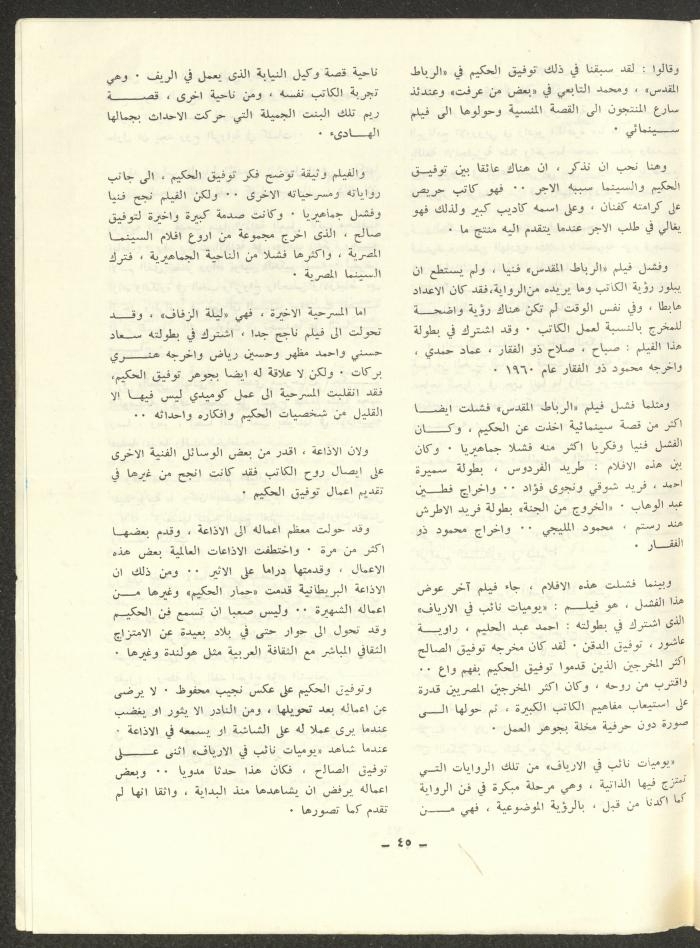 وقالوا : لقد سبقنا في ذلك توفيق الحكيم في «الرباط
المقدس» ، ومحمد التابعي في «بعض من عرفت» وعندئذ
سارع المنتجون الى القصة المنسية وحولوها الى فيلم
سينمائي ٠
وهنا نحب ان نذكر ، ان هناك عائقا بين توفيق
الحكيم والسينما سببه الاجر ٠٠ فهو كاتب حريص
على كرامته كفنان ، وعلى اسمه كاديب كبير ولذلك فهو
يغالي في طلب الاجر عندما يتقدم اليه منتج ما ٠
وفشل فيلم «الرباط المقدس» فنيا ، ولم يستطع ان
يبلور رؤية الكاتب وما يريده من الرواية، فقد كان الاعداد
هابطا ، وفي نفس الوقت لم تكن هناك رؤية واضحة
للمخرج بالنسبة لعمل الكاتب ٠ وقد اشترك في بطولة
هذا الفيلم : صباح ، صلاح ذو الفقار ، عماد حمدي ،
واخرجه محمود ذو الفقار عام ١٩٦٠ ٠
ومثلما فشل فيلم «الرباط المقدس» فشلت ايضا
اكثر من قصة سينمائية اخذت عن الحكيم ، وكان
الفشل فنيا وفكريا اكثر منه فشلا جماهيريا ٠ وكان
بين هذه الافلام : طريد الفردوس ، بطولة سميرة
احمد ، فريد شوقي ونجوى فؤاد ٠٠ واخراج فطين
عبد الوهاب ٠ «الخروج من الجنة» بطولة فريد الاطرش
هند رستم ، محمود المليجي ٠٠ واخراج محمود ذو
الفقار ٠
وبينما فشلت هذه الافلام ، جاء فيلم آخر عوض
هذا الفشل ، هو فيلم : «يوميات نائب في الارياف»
الذى اشترك في بطولته : احمد عبد الحليم ، راوية
عاشور ، توفيق الدقن ٠ لقد كان مخرجه توفيق الصالح
اكثر المخرجين الذين قدموا توفيق الحكيم بفهم واع ٠٠
واقترب من روحه ، وكان اكثر المخرجين المصريين قدرة
على استيعاب مفاهيم الكاتب الكبيرة ، ثم حولها الى
صورة دون حرفية مخلة بجوهر العمل ٠
«يوميات نائب في الارياف» من تلك الروايات التي
تمتزج فيها الذاتية ، وهي مرحلة مبكرة في فن الرواية
كما اكدنا من قبل ، بالرؤية الموضوعية ، فهي من
ناحية قصة وكيل النيابة الذى يعمل في الريف ٠ وهي
تجربة الكاتب نفسه ، ومن ناحية اخرى ، قصة
ريم تلك البنت الجميلة التي حركت الاحداث بجمالها
الهادىء ٠
والفيلم وثيقة توضح فكر توفيق الحكيم ، الى جانب
رواياته ومسرحياته الاخرى ٠٠ ولكن الفيلم نجح فنيا
وفشل جماهيريا ٠ وكانت صدمة كبيرة واخيرة لتوفيق
صالح ، الذى اخرج مجموعة من اروع افلام السينما
المصرية ، واكثرها فشلا من الناحية الجماهيرية ، فترك
السينما المصرية ٠
اما المسرحية الاخيرة ، فهي «ليلة الزفاف» ، وقد
تحولت الى فيلم ناجح جدا ، اشترك في بطولته سعاد
حسني واحمد مظهر وحسين رياض واخرجه هنري
بركات ٠ ولكن لا علاقة له ايضا بجوهر توفيق الحكيم،
فقد انقلبت المسرحية الى عمل كوميدي ليس فيها الا
القليل من شخصيات الحكيم وافكاره واحداثه ٠٠
ولان الاذاعة ، اقدر من بعض الوسائل الفنية الاخرى
على ايصال روح الكاتب فقد كانت انجح من غيرها في
تقديم اعمال توفيق الحكيم ٠
وقد حولت معظم اعماله الى الاذاعة ، وقدم بعضها
اكثر من مرة ٠ واختطفت الاذاعات العالمية بعض هذه
الاعمال ، وقدمتها دراما على الاثير ٠٠ ومن ذلك ان
الاذاعة البريطانية قدمت «حمار الحكيم» وغيرها من
اعماله الشهيرة ٠٠ وليس صعبا ان تسمع فن الحكيم
وقد تحول الى حوار حتى في بلاد بعيدة عن الامتزاج
الثقافي المباشر مع الثقافة العربية مثل هولندة وغيرها ٠
وتوفيق الحكيم على عكس نجيب محفوظ ٠ لا يرضى
عن اعماله بعد تحويلها ، ومن النادر الا يثور او يغضب
عندما يرى عملا له على الشاشة او يسمعه في الاذاعة ٠
عندما شاهد «يوميات نائب في الارياف» اثنى على
توفيق الصالح ، فكان هذا حدثا مدويا ٠٠ وبعض
اعماله يرفض ان يشاهدها منذ البداية ، واثقا انها لم
تقدم كما تصورها ٠
– ٤٥ –